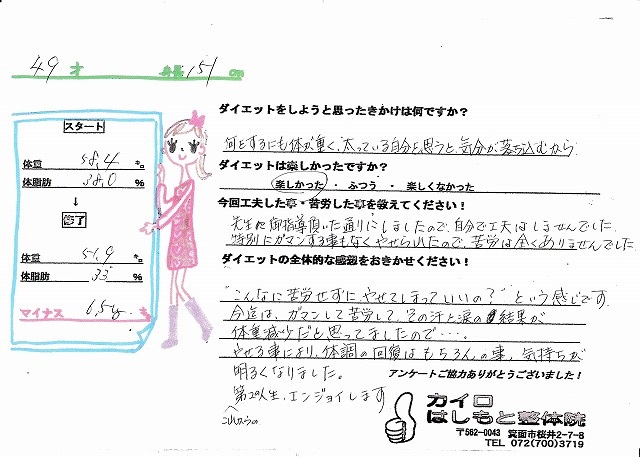 49才 身長151cm
スタート
体重 58.4 kg
体脂肪 38.0 %
↓
終了
体重 51.9 kg
体脂肪 33 %
マイナス 6.5kg
ダイエットをしようと思ったきかけは何ですか?
何をするにも体が重く、太っている自分を思うと、気分が落ち込むから
ダイエットは楽しかったですか?
楽しかった ・ ふつう ・ 楽しくなかった
今回工夫した事・苦労した事を教えてください!
先生に御指導頂いた通りにしましたので、自分で工夫はしませんでした。
特別にガマンする事もなくやせられたので、苦労は全くありませんでした
ダイエットの全体的な感想をおきかせください!
"こんなに苦労せずに、やせてしまっていいの?" という感じです
今迄は、ガマンして苦労して、その汗と涙の結果が
体重減少だと思ってましたので・・・。
やせる事により、体調の回復はもちろんの事、気持ちが
明るくなりました。
アンケートご協力ありがとうございました!
これからの第2の人生、エンジョイします
カイロ
はしもと整体院
〒562-0043 箕面市桜井2-7-8
TEL 072(700)3719